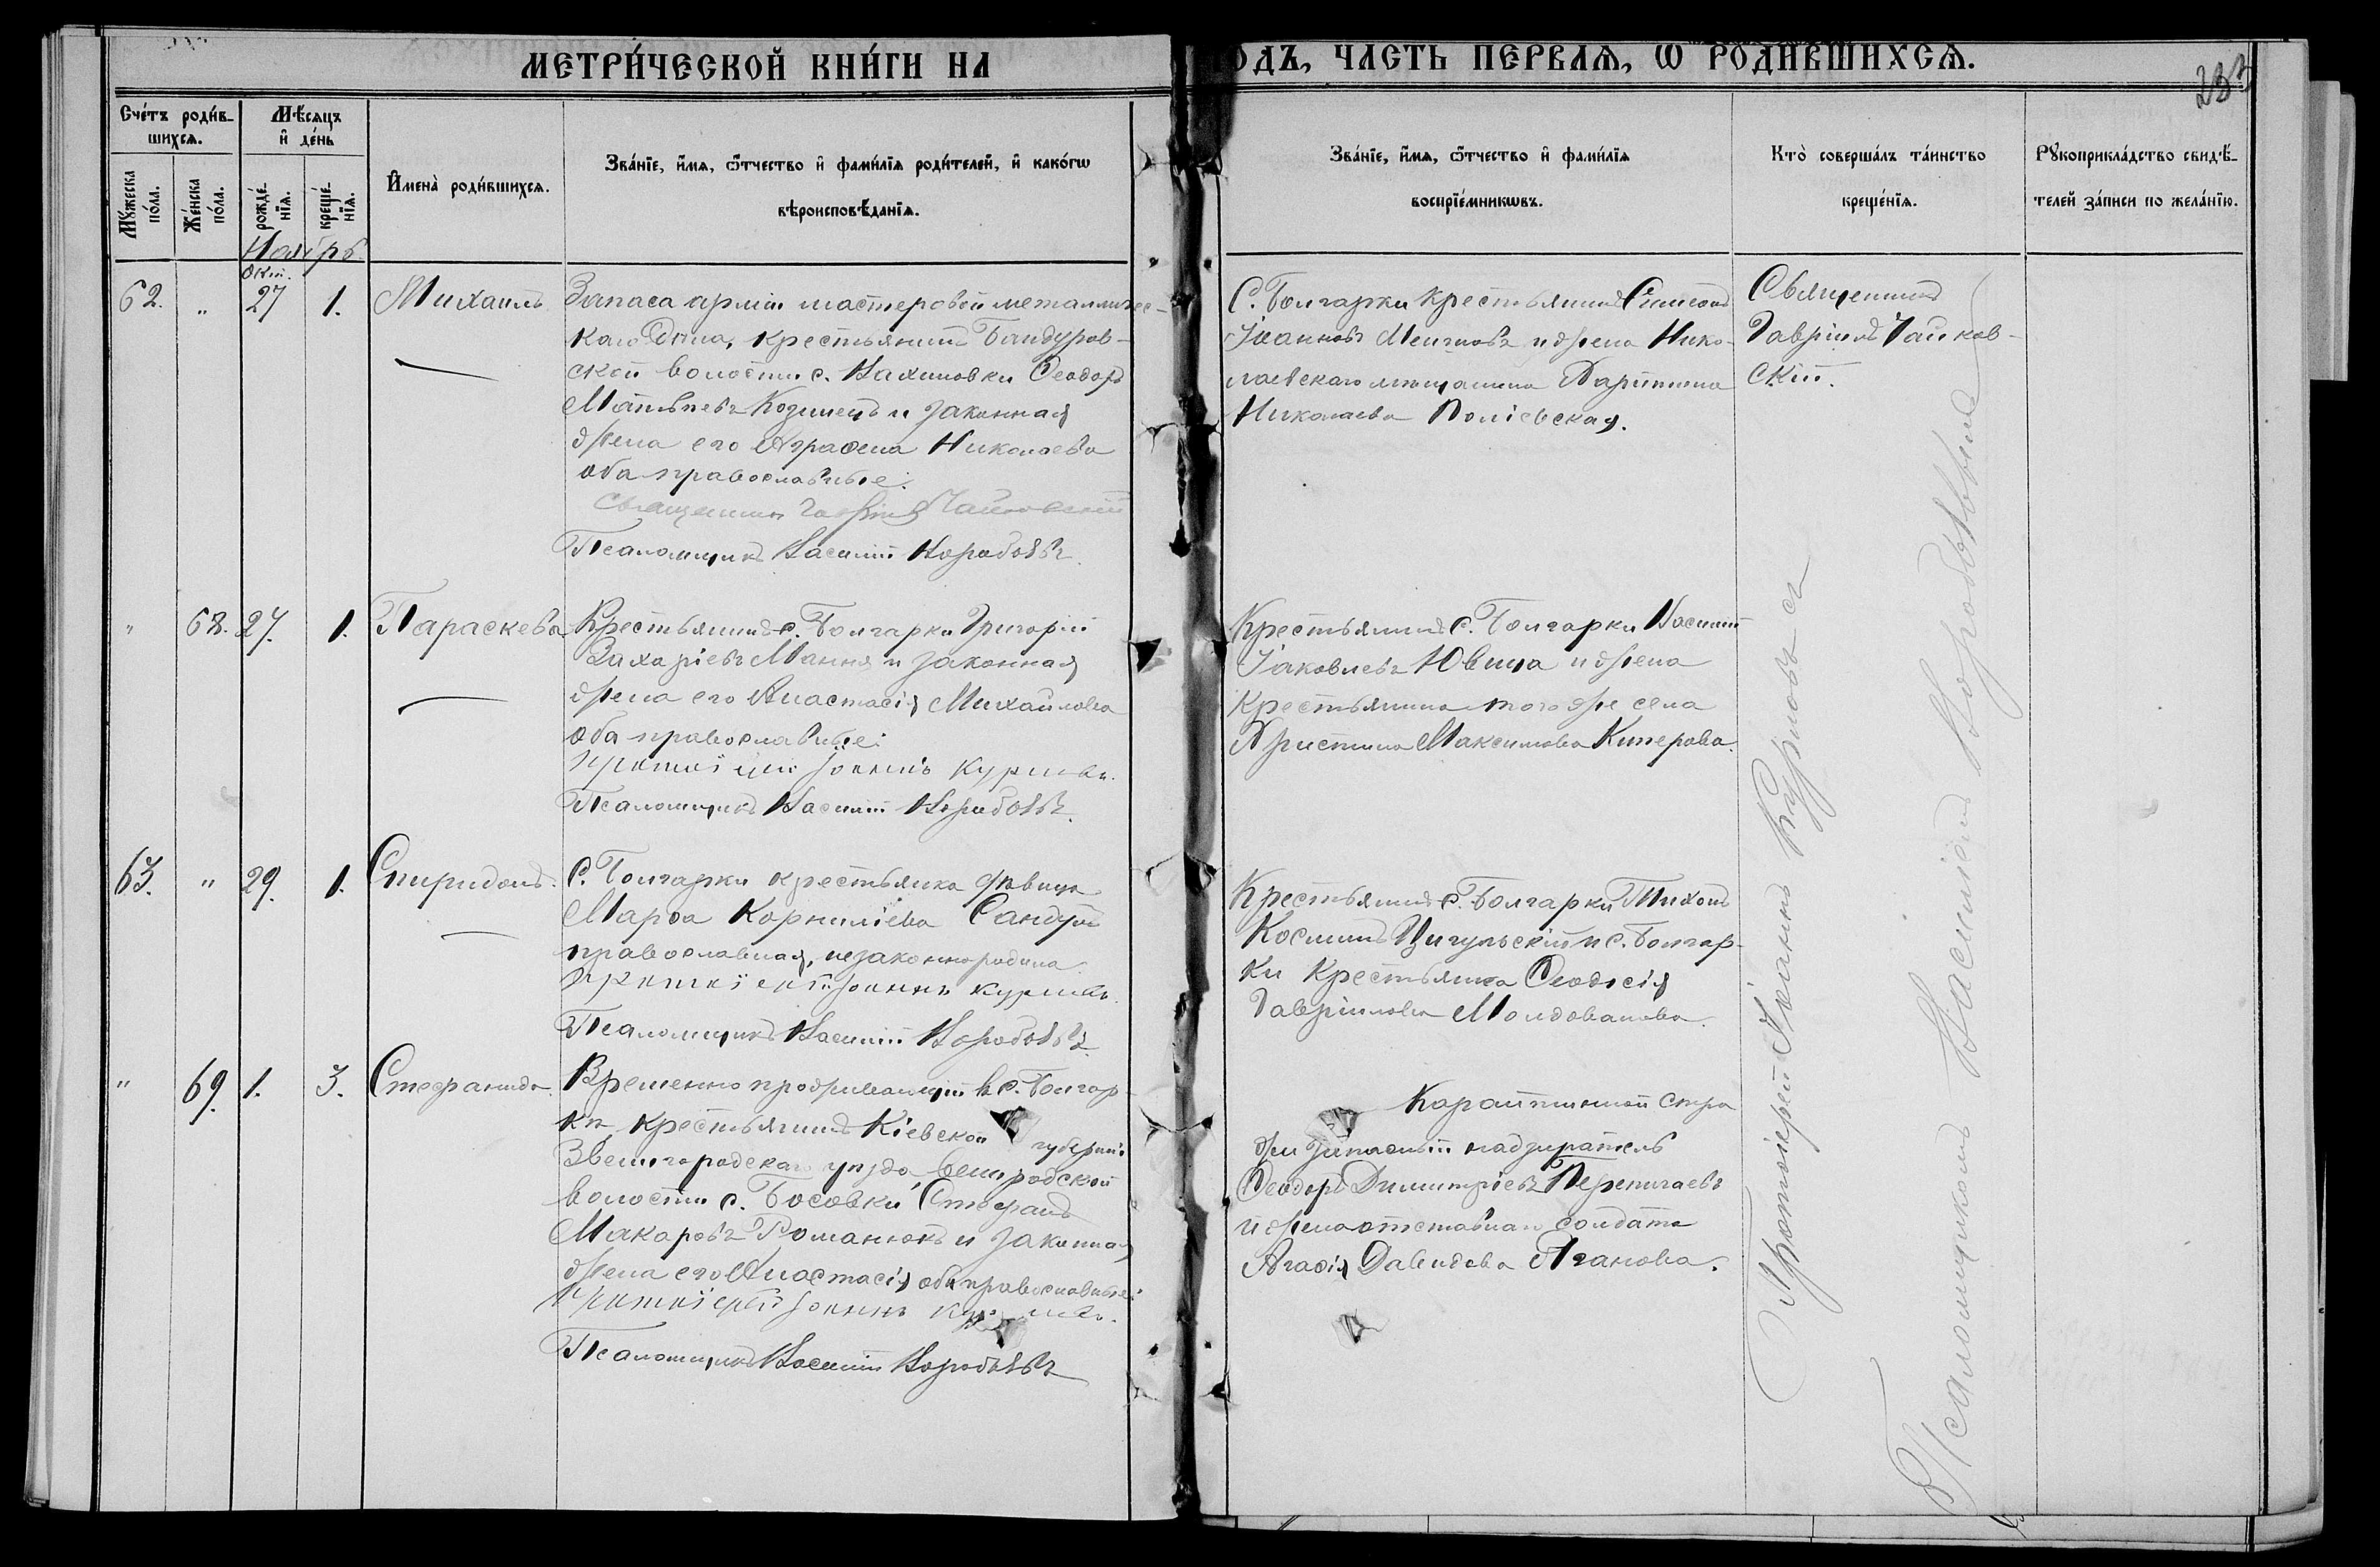 МЕТРИ́ЧЕСКОЙ КНИ́ГИ НА
ОДЪ, ЧАСТЬ ПЕРВАѦ, Ѡ РОДИ́ВШИХСѦ.
233
Сче́тъ роди́в-
шихсѧ.
Мѣ́сѧцъ
и҆ де́нь
Мꙋ́жеска
по́ла.
Же́нска
по́ла.
рожде́-
нїѧ.
креще́-
нїѧ.
И҆мена̀ роди́вшихсѧ.
Зва́нїе, и҆́мѧ, ѻ҆́тчество и҆ фами́лїѧ роди́телей, и҆ како́гѡ
вѣроисповѣ́данїѧ.
Зва́нїе, и҆́мѧ, ѻ҆́тчество и҆ фами́лїѧ
воспрїе́мникѡвъ.
Кто̀ соверша́лъ та́инство
креще́нїѧ.
Рꙋкоприкла́дство свидѣ́-
телей за́писи по жела́нїю.
Ноябрь
Окт.
62. " 27 1. Михаилъ
Запаса арміи мастеровой металличес-
каго дѣла, крестьянинъ Бандуров-
ской волости с. Ѳеодоръ
Матѳѣевъ и законная
жена его Аграфена Николаева
оба православные.
Священникъ Гавріилъ
Псаломщикъ Василій Воробьевъ.
С. Болгарки крестьянинъ Симеонъ
Іоанновъ и жена Нико-
лаевскаго мѣщанина
Николаева
Священникъ
Гавріилъ
скій.
" 68. 27. 1. Параскева
Крестьянинъ с. Болгарки Григорій
Захаріевъ и законная
жена его Анастасія Михайлова
оба православные.
Протоіерей Іоаннъ Курловъ.
Псаломщикъ Василій Воробьевъ.
Крестьянинъ с. Болгарки Василій
Іаковлевъ и жена
крестьянина того же села
Христина Максимова Киперова.
63. " 29. 1. Спиридонъ.
С. Болгарки крестьянка дѣвица
Марѳа Корниліева Сандулъ
православная, незаконнородила
Протоіерей Іоаннъ Курловъ.
Псаломщикъ Василій Воробьевъ.
Крестьянинъ с. Болгарки Тихонъ
Косминъ Цигульскій и с. Болгар-
ки крестьянка Ѳеодосія
Гавріилова Молдованова.
" 69. 1. 3. Стефанида.
Временно проживающій въ с. Болгар-
кѣ крестьянинъ Кіевской губерніи
Звенигородскаго уѣзда,
волости с. Босовки Стефанъ
Макаровъ Романюкъ и законная
жена его Анастасія, оба православные.
Протоіерей Іоаннъ Курловъ.
Псаломщикъ Василій Воробьевъ
Карантинной стра
жи запасный надзиратель
Ѳеодоръ Димитріевъ Перепичаевъ
и жена отставнаго солдата
Агафія Давидова Аганова.
Протоіерей Іоаннъ Курловъ съ
Псаломщикомъ Василіемъ Воробьевымъ